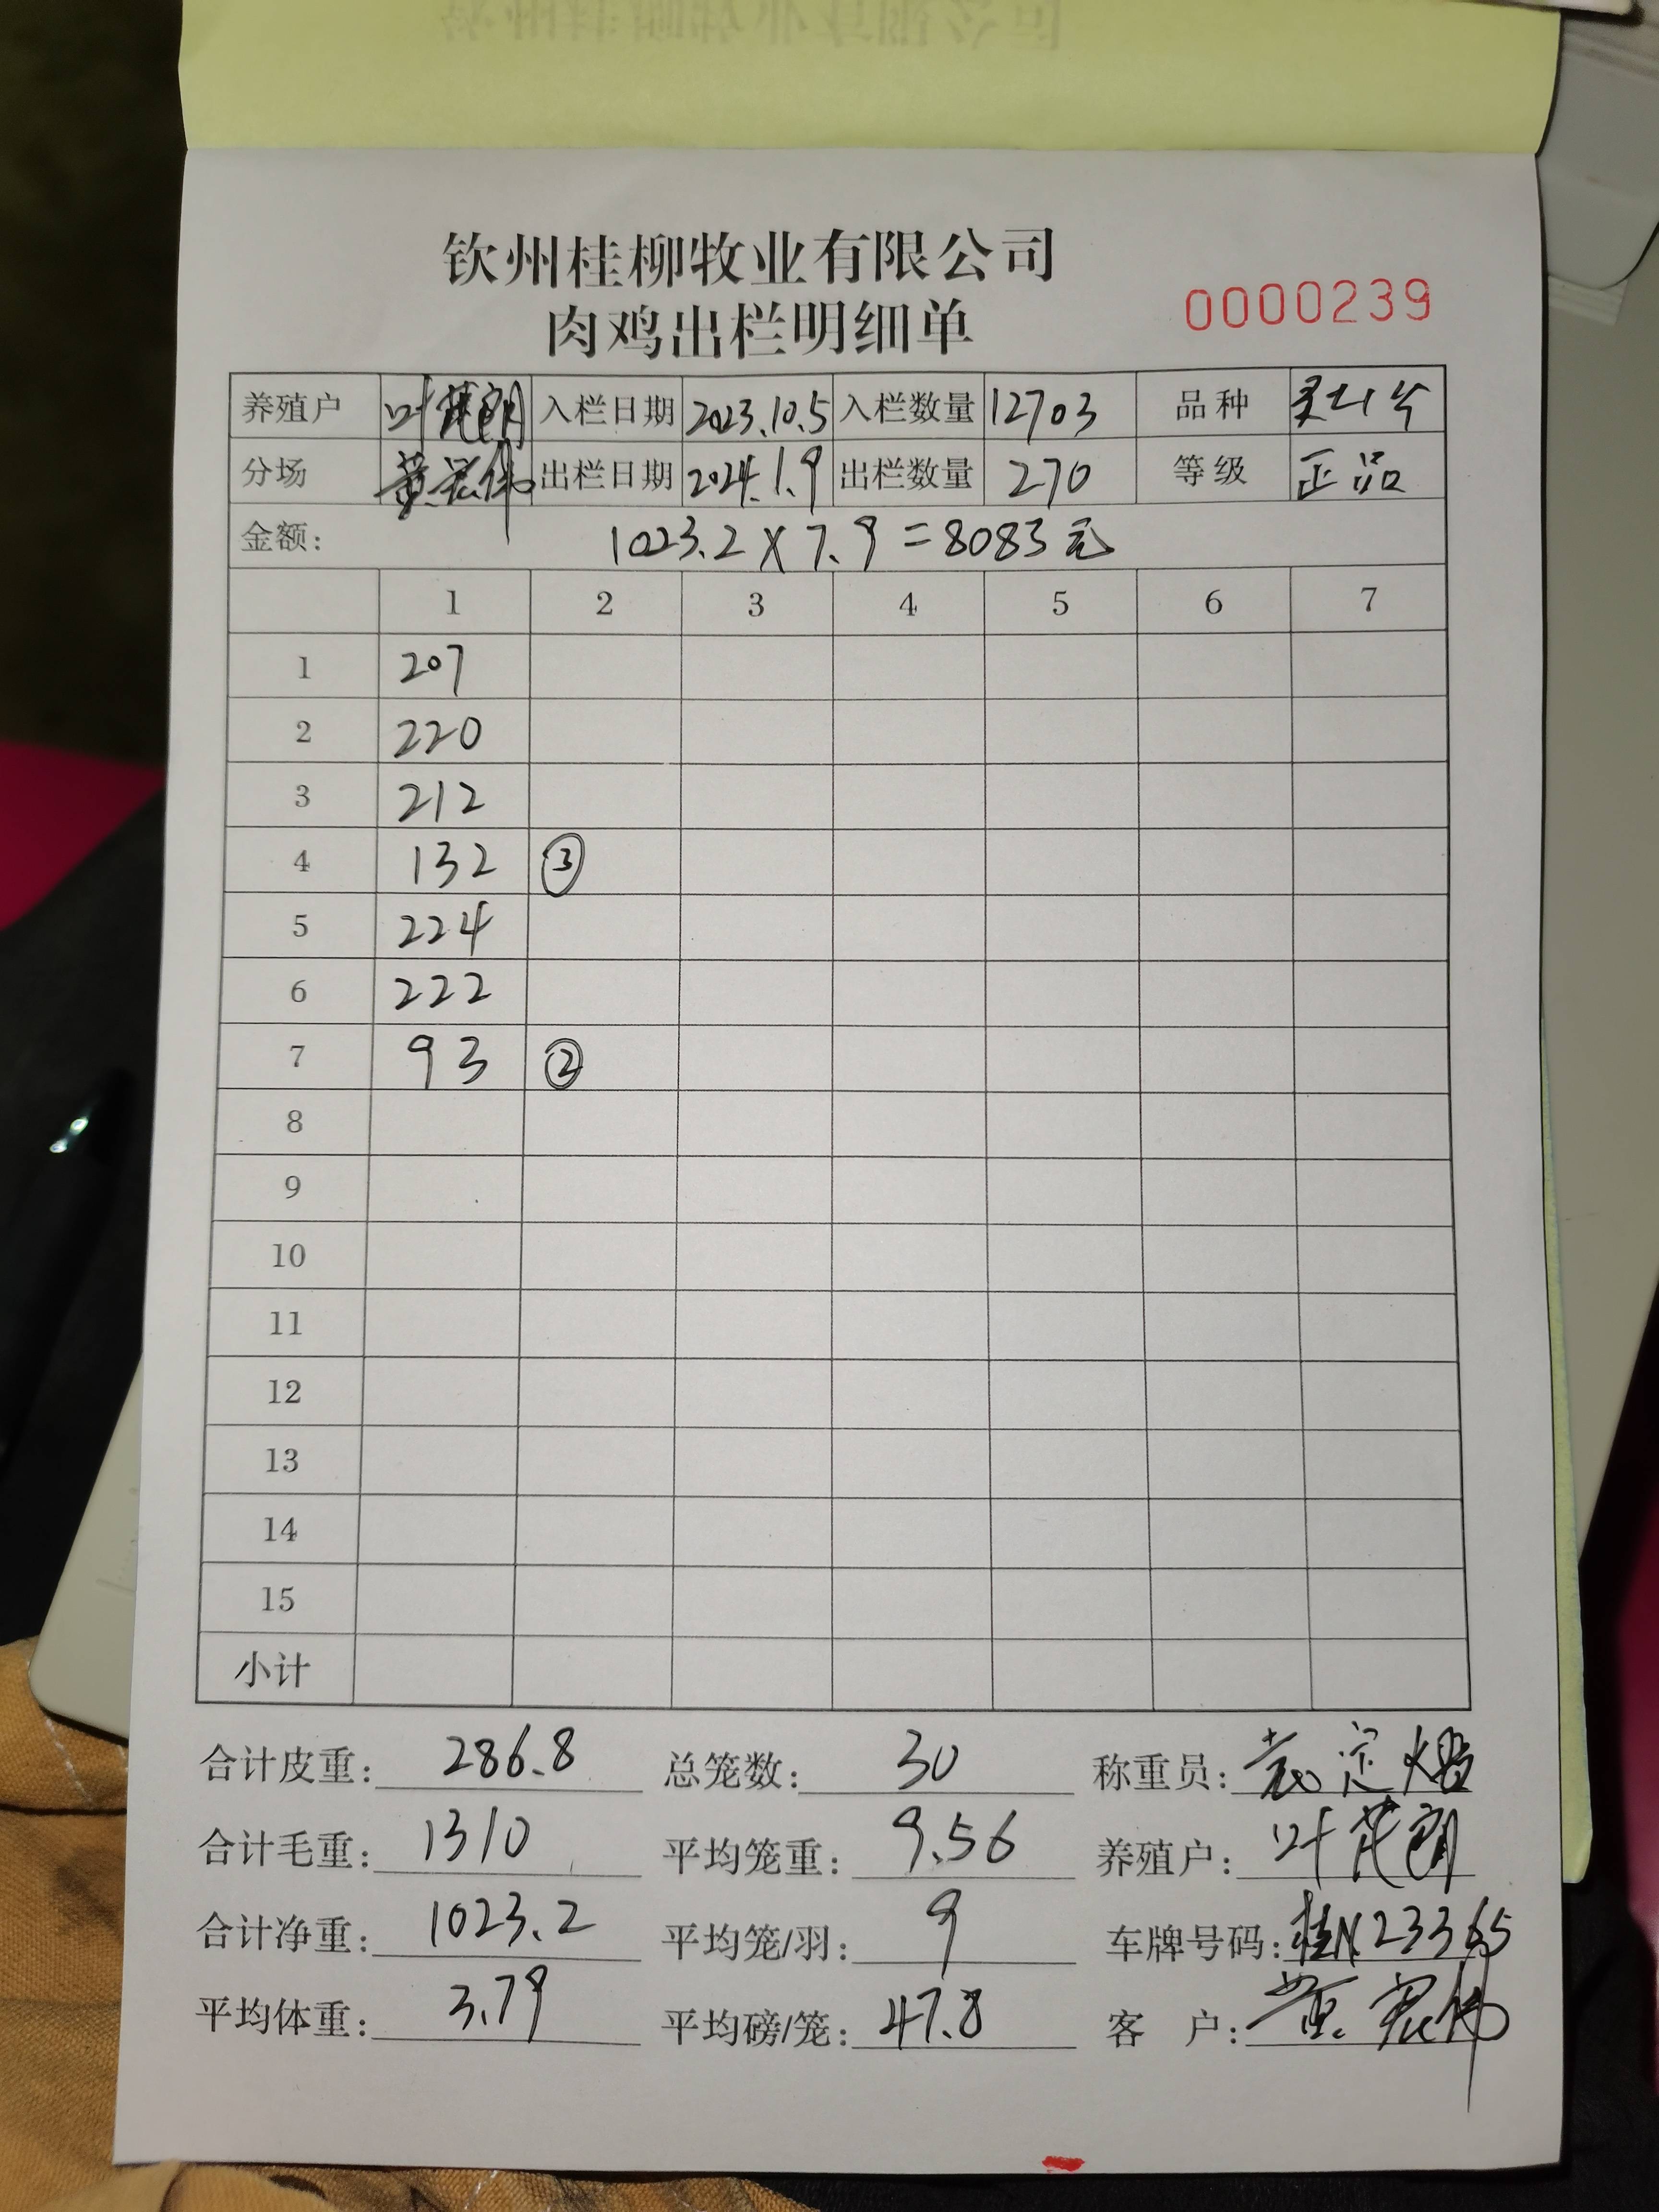 钦州桂柳牧业有限公司
肉鸡出栏明细单
0000239
养殖户 叶茂朗 入栏日期 2023.10.5 入栏数量 12703 品种
分场 出栏日期 2024.1.9 出栏数量 270 等级 正品
金额: 1023.2 X 7.9 = 8083元
1 2 3 4 5 6 7
1 207
2 220
3 212
4 132 ③
5 224
6 222
7 93 ②
8
9
10
11
12
13
14
15
小计
合计皮重: 286.8 总笼数: 30 称重员:
合计毛重: 1310 平均笼重: 9.56 养殖户: 叶茂朗
合计净重: 1023.2 平均笼/羽: 9 车牌号码: 桂N.23365
平均体重: 3.79 平均磅/笼: 47.8 客 户: